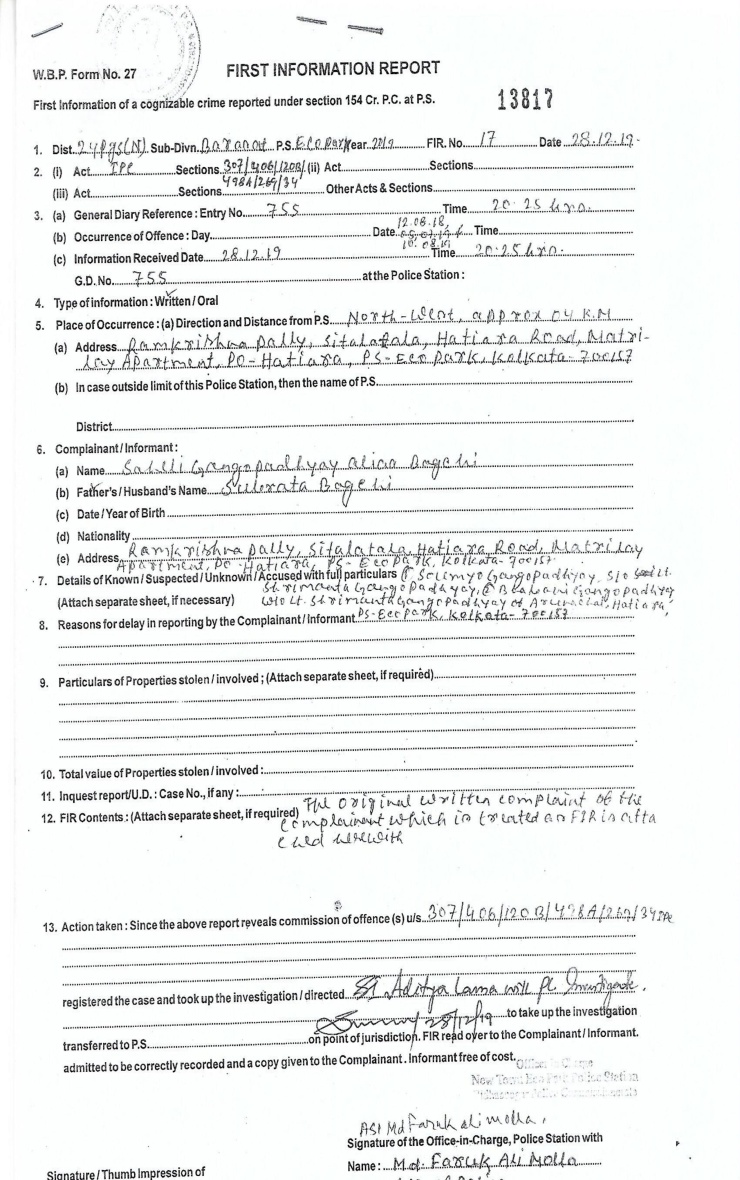 W.B.P. Form No. 27
FIRST INFORMATION REPORT
First Information of a cognizable crime reported under section 154 Cr. P.C. at P.S.
13817
1. Dist. 24Pgs(N) Sub-Divn. Barasat P.S. Eco Park Year 2019 FIR. No. 17 Date 28.12.19.
2. (i) Act IPC Sections 307/406/120B/ (ii) Act Sections
498A/269/34
(iii) Act Sections Other Acts & Sections
3. (a) General Diary Reference : Entry No. 755 Time 20.25 hrs.
12.08.18,
(b) Occurrence of Offence : Day Date Time
10.08.19
(c) Information Received Date 28.12.19 Time 20.25 hrs.
G.D. No. 755 at the Police Station :
4. Type of information : Written / Oral
5. Place of Occurrence : (a) Direction and Distance from P.S. North-West, approx 04 K.M
(a) Address Ramkrishna pally, Sitalatala, Hatiara Road, Matri-
lay Apartment, PO-Hatiara, PS-Eco Park, Kolkata-700157
(b) In case outside limit of this Police Station, then the name of P.S.
District
6. Complainant / Informant :
(a) Name Gangopadhyay alias Bagchi
(b) Father's / Husband's Name Subrata Bagchi
(c) Date / Year of Birth
(d) Nationality
(e) Address Ramkrishna pally, Sitalatala, Hatiara Road, Matrilay
Apartment, PO-Hatiara, PS-Eco Park, Kolkata-700157
7. Details of Known / Suspected / Unknown / Accused with full particulars Soumyo Gangopadhyay, S/o Lt.
Shrimanta Gangopadhyay, Bhabani Gangopadhyay
(Attach separate sheet, if necessary) W/o Lt. Shrimanta Gangopadhyay of Hatiara,
8. Reasons for delay in reporting by the Complainant / Informant PS-Eco Park, Kolkata-700157
9. Particulars of Properties stolen / involved ; (Attach separate sheet, if required)
10. Total value of Properties stolen / involved :
11. Inquest report/U.D. : Case No., if any :
12. FIR Contents : (Attach separate sheet, if required) The original written complaint of the
complainant which is treated as FIR is atta
ched herewith
13. Action taken : Since the above report reveals commission of offence (s) u/s 307/406/120B/498A/269/34 IPC
registered the case and took up the investigation / directed SI Aditya Lama will pl Investigate.
28/12/19 to take up the investigation
transferred to P.S. on point of jurisdiction. FIR read over to the Complainant / Informant.
admitted to be correctly recorded and a copy given to the Complainant . Informant free of cost.
Officer in Charge
New Town Eco Park Police Station
ASI Md Faruk ali molla.
Signature of the Office-in-Charge, Police Station with
Name : Md. Faruk Ali Molla
Signature / Thumb Impression of